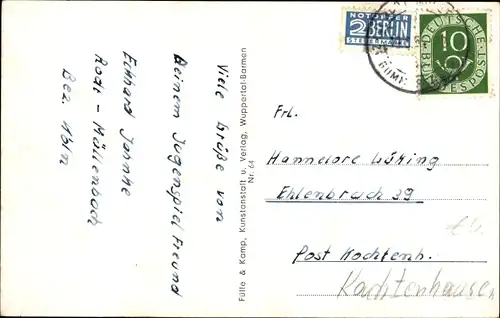 Viele Grüße von
Deinem Jugenspiel Freund
Eckhard Jahnke
Rodt - Müllenbach
Bez. Köln
Fülle & Kamp, Kunstanstalt u. Verlag, Wuppertal-Barmen
Nr. 64
NOTOPFER
2 BERLIN
STEUERMARKE
DEUTSCHE
BUNDESPOST
10
Frl.
Hannelore Lüking
Ehlenbruch 39
Post Kachtenh.
Kachtenhausen